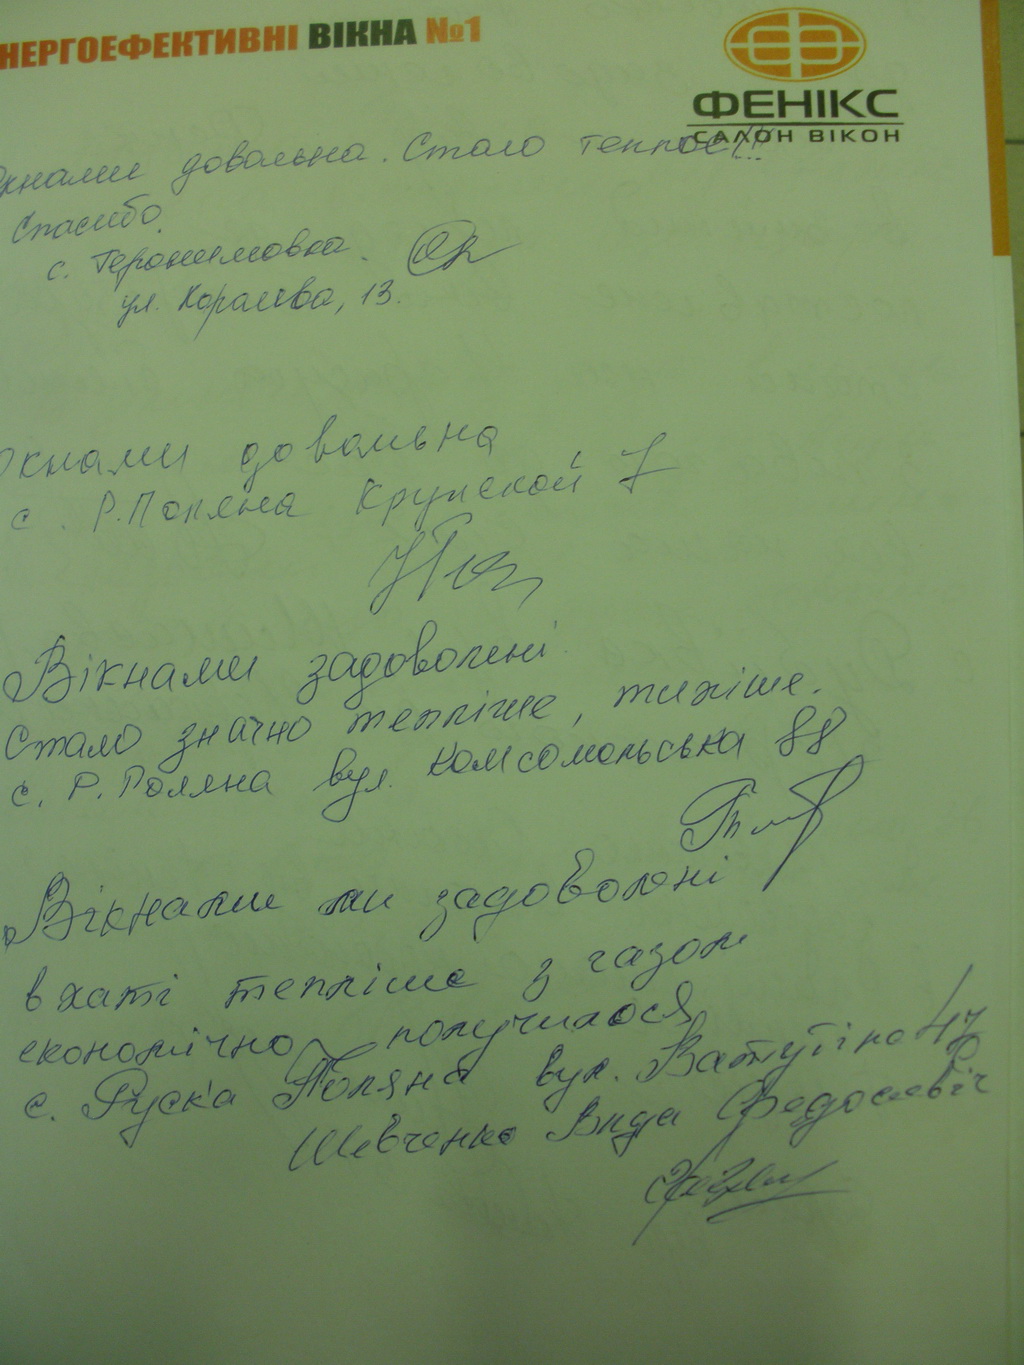 НЕРГОЕФЕКТИВНІ ВІКНА №1
ФЕНІКС
САЛОН ВІКОН
окнами довольна. Стало теплоєє!!!
Спасибо.
с. Геронимовка.
ул. Королёва, 13.
Окнами довольна
с. Р.Поляна Крупской 7
Вікнами задоволені.
Стало значно тепліше, тихіше.
с. Р. Поляна вул. Комсомольська 88
Вікнами ми задоволені
в хаті тепліше з газом
економічно получилося
с. Руск'а Поляна вул. Ватутіна 47
Шевченко Федосієвіч